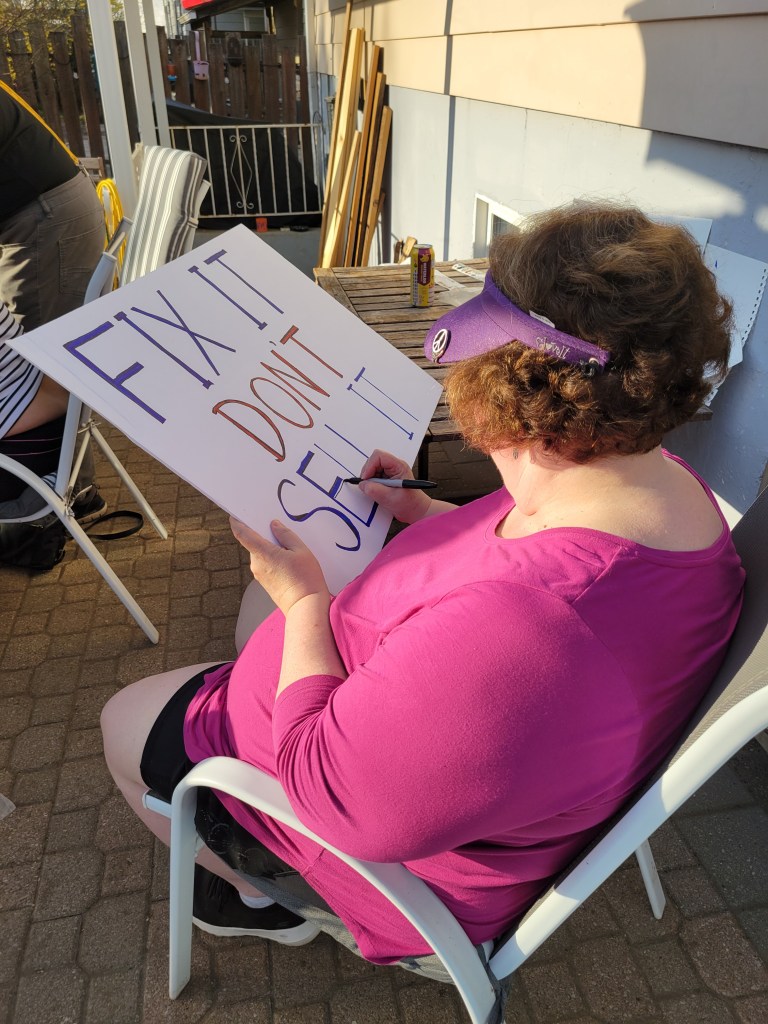 FIX IT
DON'T
SELL IT